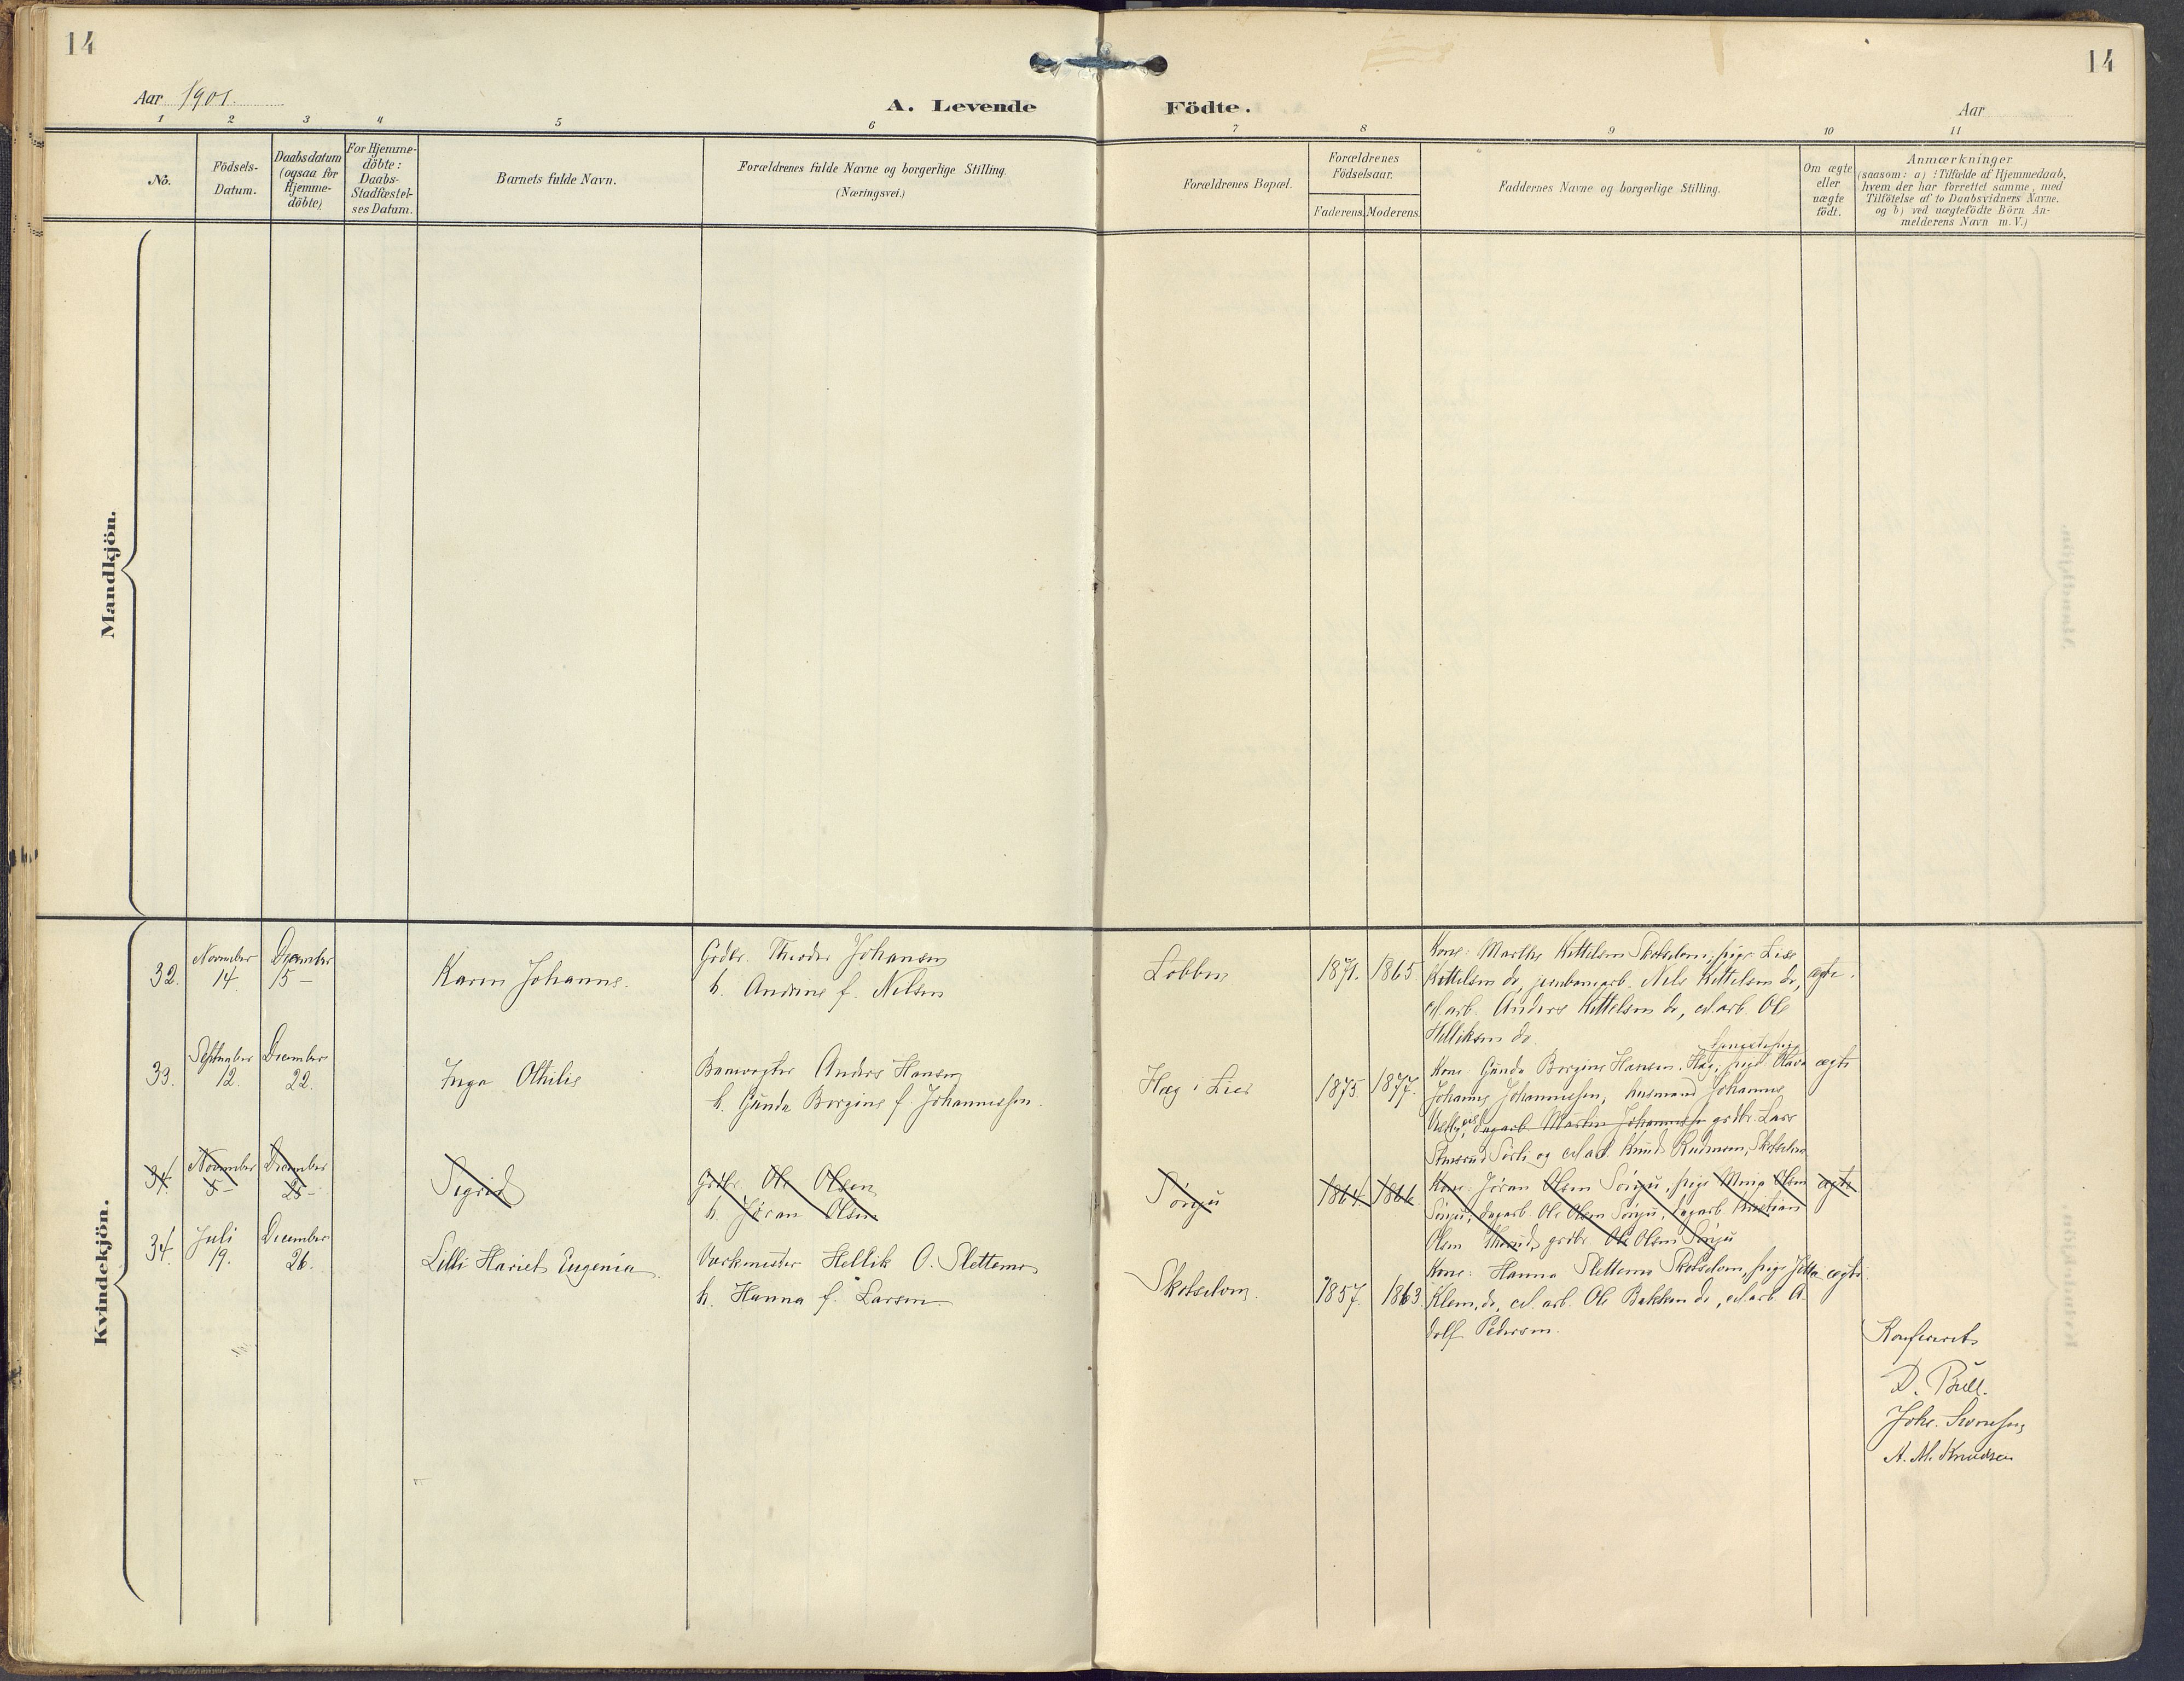 14
14
Aar 1901.
A. Levende Födte.
Aar
1 2 3 4 5 6 7 8 9 10 11
No.
Födsels-
Datum.
Daabsdatum
(ogsaa for
Hjemme-
döbte)
For Hjemme-
döbte:
Daabs-
Stadfæstel-
ses Datum.
Barnets fulde Navn.
Forældrenes fulde Navne og borgerlige Stilling.
(Næringsvei.)
Forældrenes Bopæl.
Forældrenes
Födselsaar.
Faderens. Moderens.
Faddernes Navne og borgerlige Stilling.
Om ægte
eller
uægte
födt.
Anmærkninger
(saasom: a) Tilfælde af Hjemmedaab,
hvem der har forrettet samme, med
Tilföielse af to Daabsvidners Navne.
og b) ved uægtefödte Börn An-
melderens Navn m.V.)
Mandkjön.
Kvindekjön.
32.
November
14.
December
15 –
Karen Johanne.
Grdbr. Theodor Johansen
h. Andrine f. Nilsen
Lobben
1871.
1865
Kone: Marthe Kittelsen Skotselven, pige Lise
Kittelsen do, jernbanearb. Nils Kittelsen do,
cel.arb. Anders Kittelsen do, cel.arb. Ole
Helliksen do.
ægte.
33.
September
12.
December
22.
Inga Othilie
Banevogter Anders Hansen
h. Gunda Borgine f. Johannessen.
Hæg i Lier
1875.
1877.
Kone Gunda Borgine Hansen, Hæg, pige Olava
Johanne Johannessen, husmand Johannes
dagarb. Martin Johannessen grdbr. Lars
Sörli og cel.arb. Knud Rudmoen, Skotselven
ægte
34.
November
5 –
December
25 –
Sigrid
Grdbr. Ole Olsen
h. Jöran Olsen
Sörgu
1864.
1866.
Kone: Jöran Olsen Sörgu, pige Mina Olsen
Sörgu, dagarb. Ole Olsen Sörgu, dagarb. Kristian
Olsen grdbr Ole Olsen Sörgu
ægte
34.
Juli
19.
December
26.
Lilli Hariet Eugenia.
Værkmester Hellik O. Slettemo
h. Hanna f. Larsen
Skotselven.
1857.
1863.
Kone: Hanna Slettemo Skotselven, pige Jetta
Klem, do, cel. arb. Ole Bakken do, cel.arb. A
dolf Pedersen.
ægte
Konfereret
D. Bull.
A. M. Knudsen